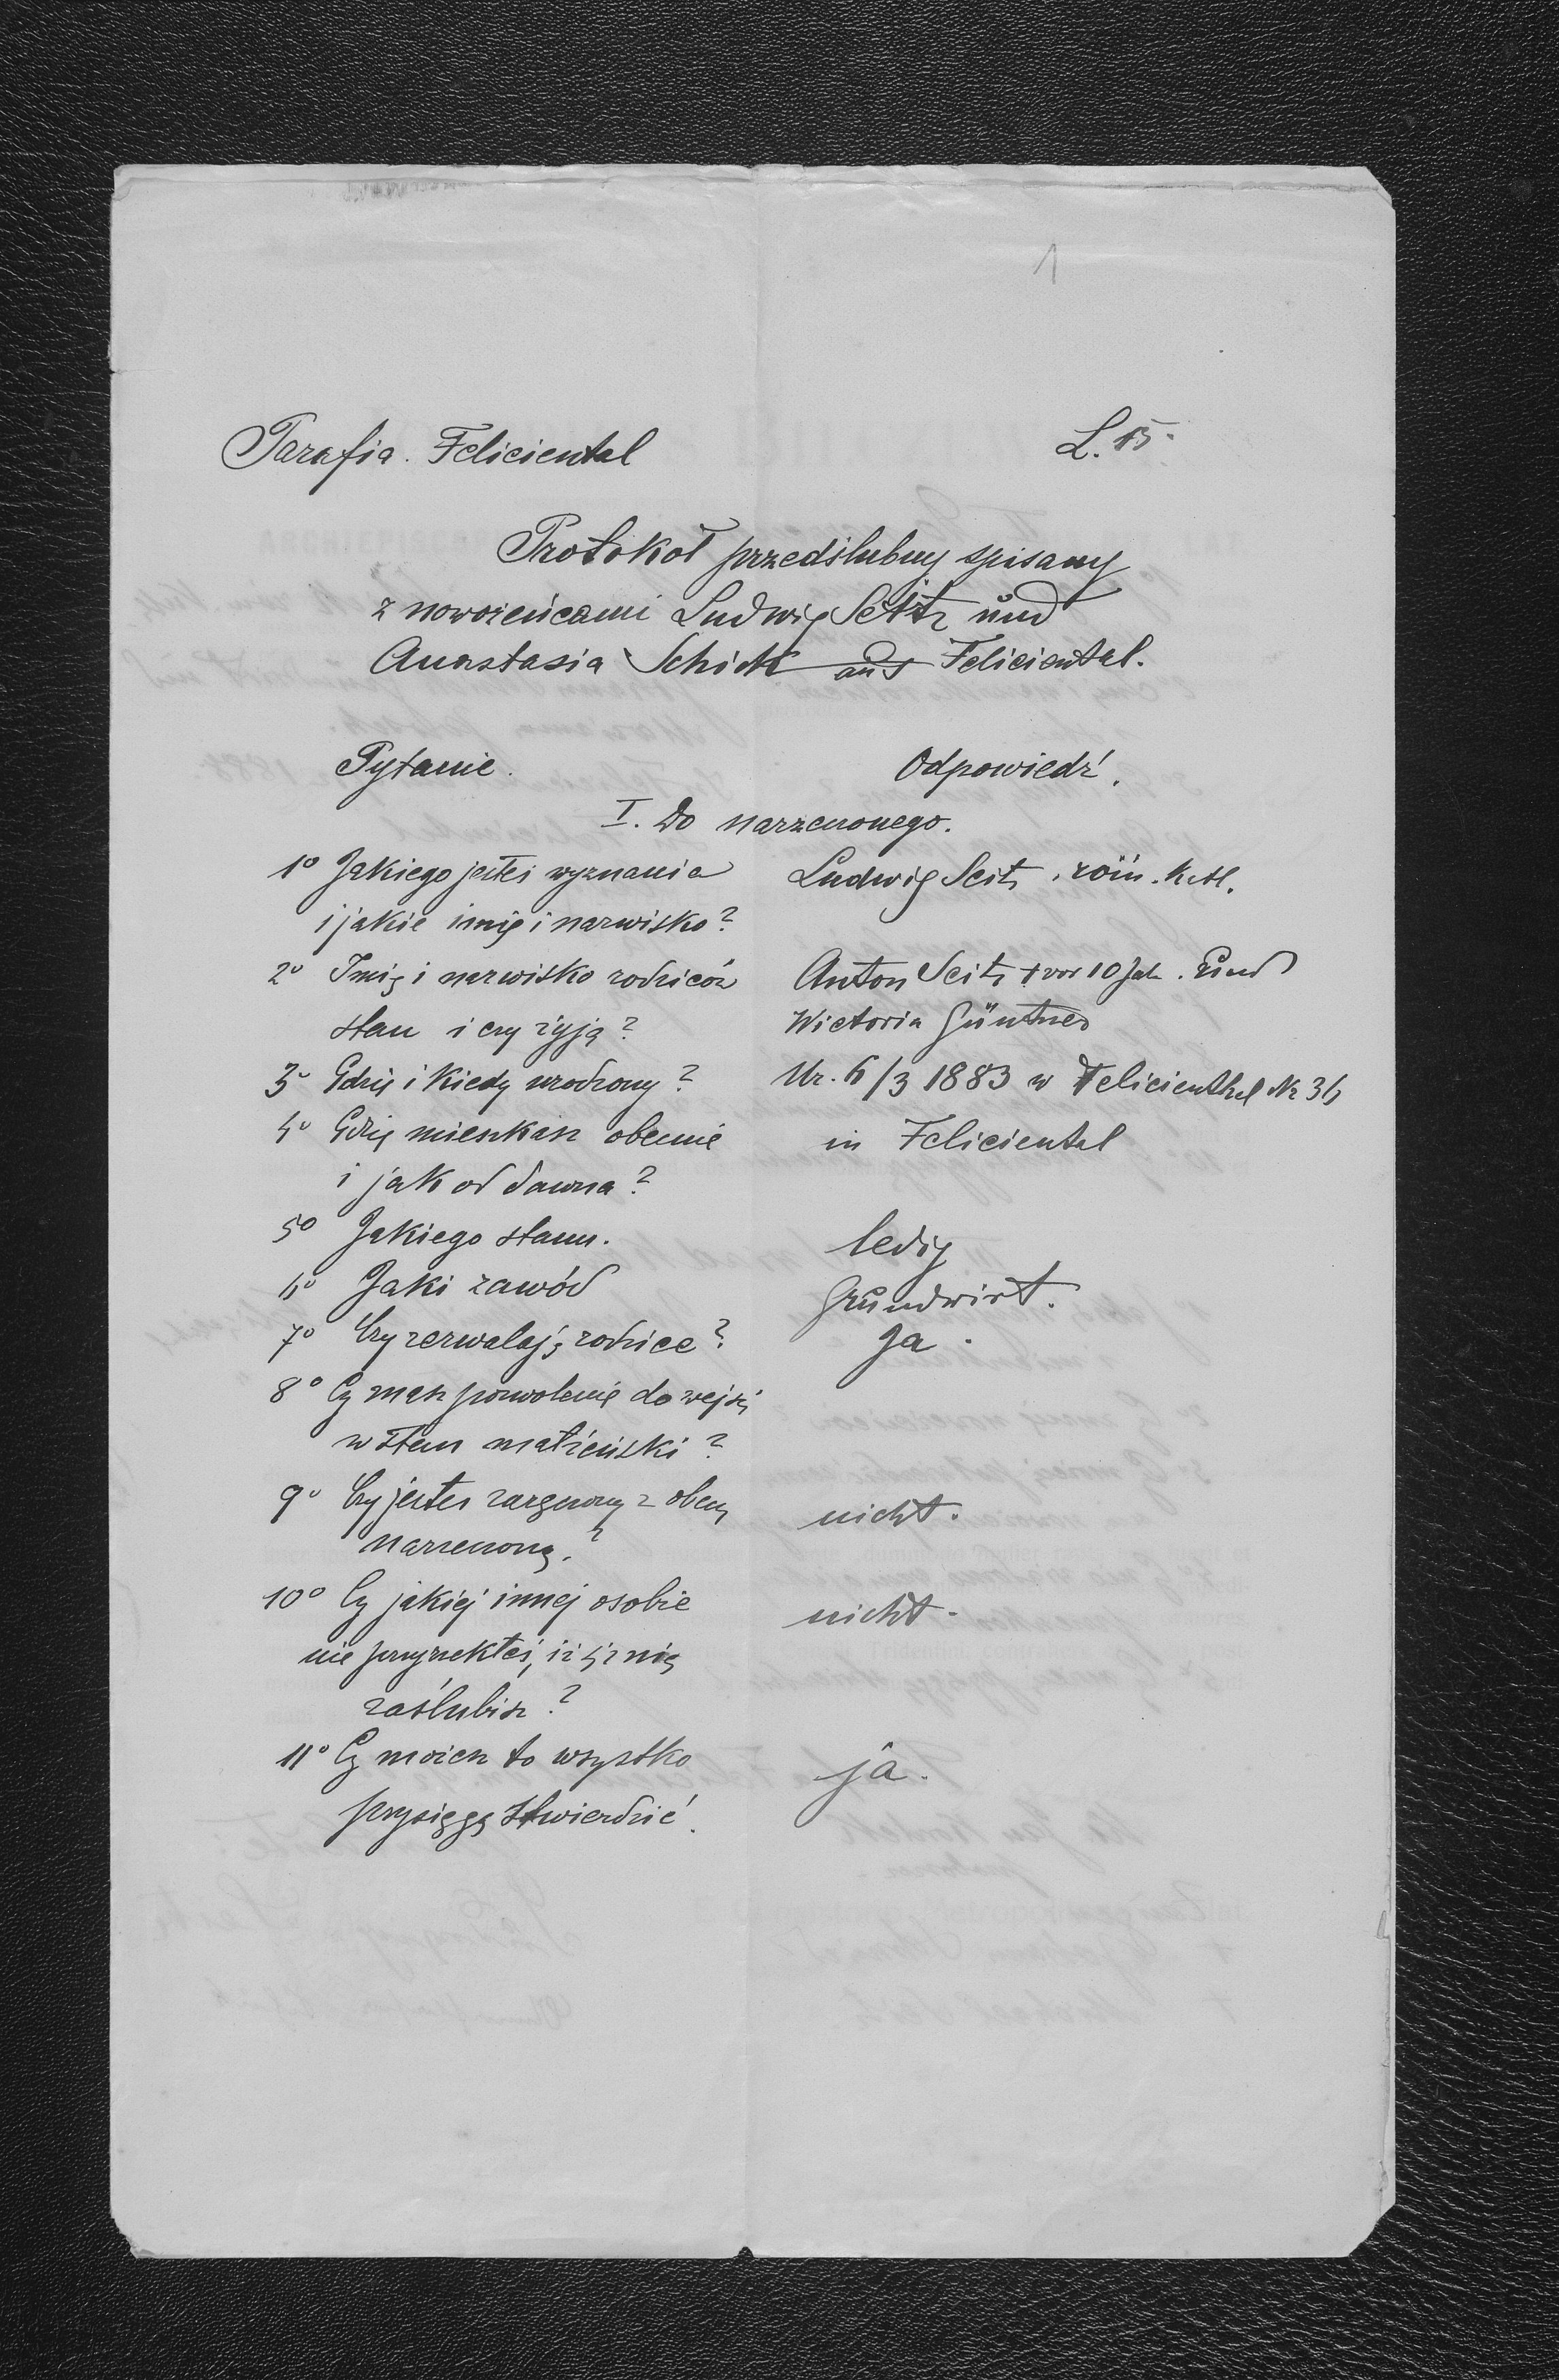 1
Parafia. Feliciental L. 15.
Protokół przedślubny spisany
z nowożeńcami Ludwig Seitz und
Anastasia Schick aus Feliciental.
Pytanie. Odpowiedź.
I. Do narzeczonego.
1º Jakiego jesteś wyznania Ludwig Seitz, röm. kath.
i jakie imię i nazwisko?
2º Imię i nazwisko rodziców Anton Seitz † vor 10 Jah. und
stan i czy żyją? Wictoria Güntner
3º Gdzie i kiedy urodzony? Ur. 6/3 1883 w Felicienthal Nr 36
4º Gdzie mieszkasz obecnie in Feliciental
i jak od dawna?
5º Jakiego stanu. ledig
6º Jaki zawód Grundwirt.
7º Czy zezwalają rodzice? Ja.
8º Czy masz pozwolenie do wejść
w stan małżeński?
9º Czy jesteś zaręczony z obcą nicht.
narzeczoną.?
10º Czy jakiej innej osobie nicht.
nie przyrzekłeś, iż ją
zaślubisz?
11º Czy możesz to wszystko ja.
przysięgą stwierdzić.